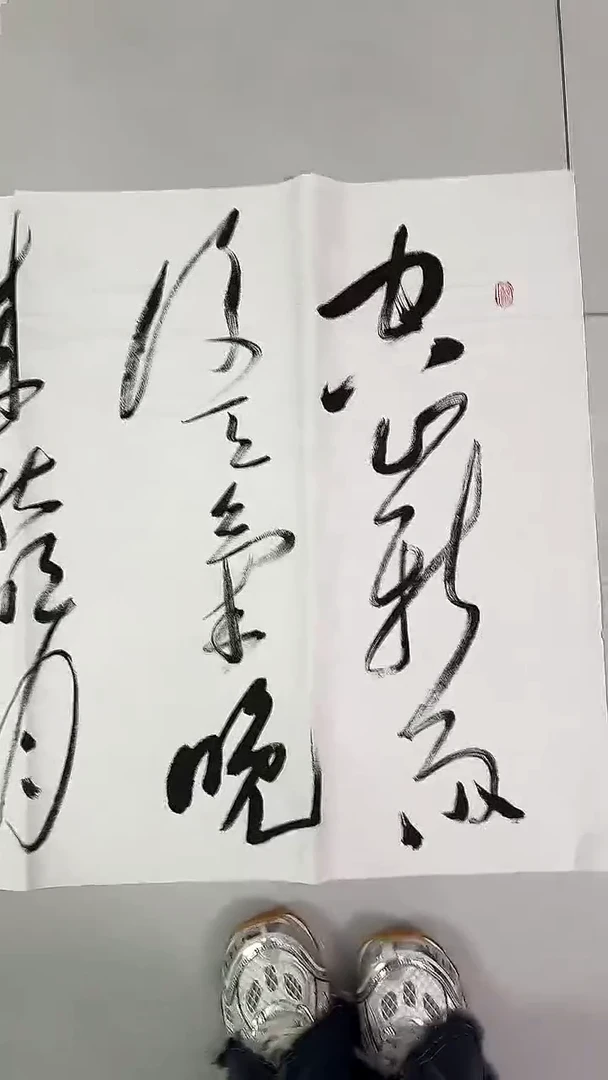 空山新雨
後天氣晚
来秋明月